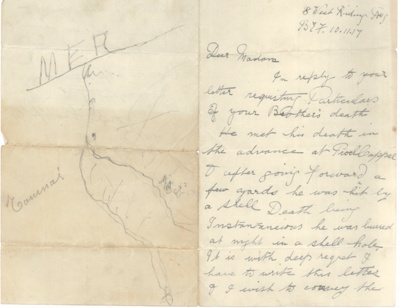 MER
8 West Riding Reg
B.E.F. 10-11-17
Dear Madam
In reply to your
letter requesting Particulars
of your Brother's death
He met his death in
the advance at
after going forward a
few yards he was hit by
a shell Death being
Instantaneous he was buried
at night in a shell hole
It is with deep regret I
have to write this letter
& I wish to convey the